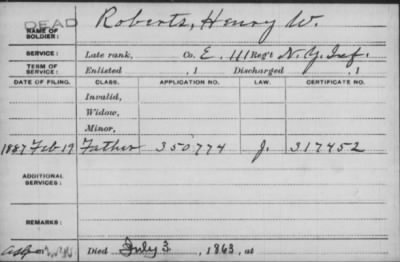 DEAD
NAME OF SOLDIER: Roberts, Henry W.
SERVICE: Late rank, Co. E. 111 Reg't N.Y. Inf.
TERM OF SERVICE: Enlisted , 1 Discharged , 1
DATE OF FILING. CLASS. APPLICATION NO. LAW. CERTIFICATE NO.
Invalid,
Widow,
Minor,
1887 Feb 19 Father 350774 J. 317452
ADDITIONAL SERVICES:
REMARKS:
Died July 3 , 1863, at